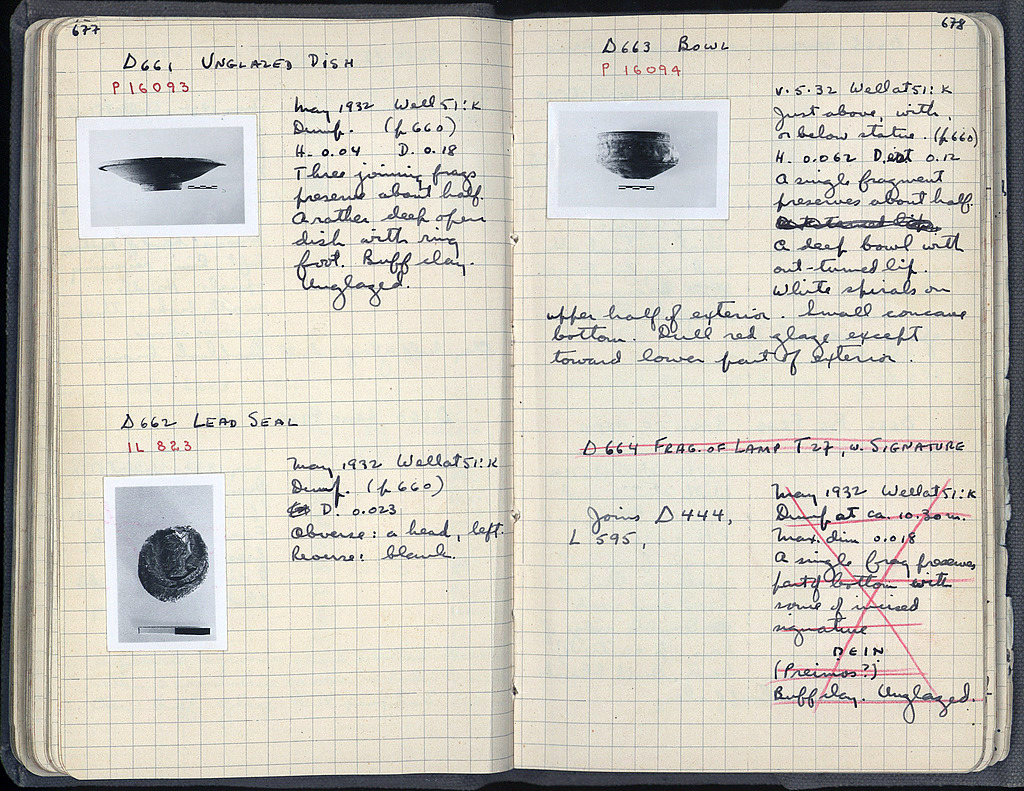 677
Δ661 UNGLAZED DISH
P 16093
May 1932 Well 51:K
Dump. (p660)
H. 0.04 D. 0.18
Three joining frags
preserve about half.
A rather deep open
dish with ring
foot. Buff clay.
Unglazed.
Δ662 LEAD SEAL
IL 823
May 1932 Well at 51:K
Dump. (p660)
D. 0.023
Obverse: a head, left.
Reverse: blank.
678
Δ663 BOWL
P 16094
V.5.32 Well at 51:K
Just above, with,
or below statue. (p660)
H. 0.062 D. est 0.12
A single fragment
preserves about half.
A deep bowl with
out-turned lip.
White spirals on
upper half of exterior. Small concave
bottom. Dull red glaze except
toward lower part of exterior.
Δ664 FRAG. OF LAMP T27, W. SIGNATURE
Joins Δ444,
L 595,
May 1932 Well at 51:K
Dump at ca. 10.30 m.
Max. dim 0.018
A single frag preserves
part of bottom with
some of incised
signature
(Preimos?)
Buff clay. Unglazed.